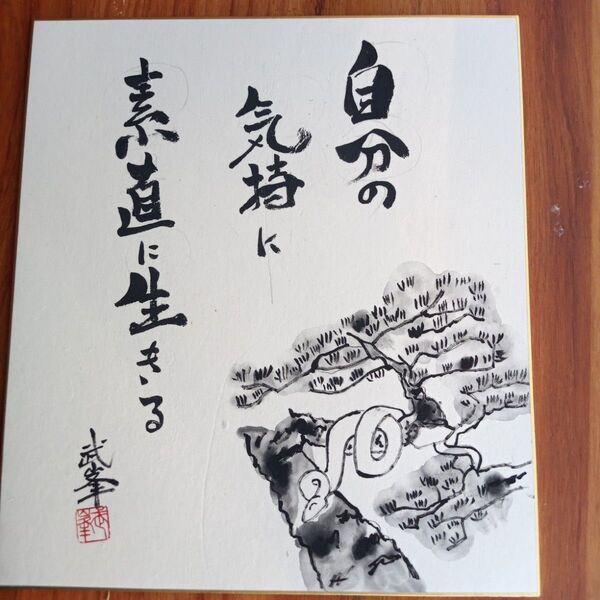 自分の
気持に
素直に生きる
武峯